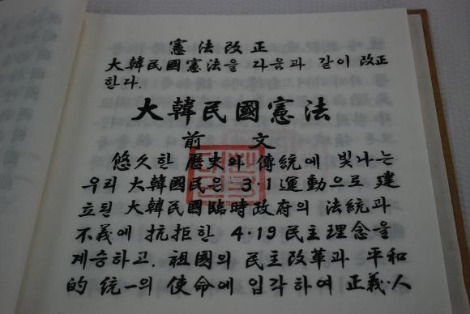 憲法改正
大韓民國憲法을 다음과 같이 改正
한다.
大韓民國憲法
前文
悠久한 歷史와 傳統에 빛나는
우리 大韓國民은 3·1運動으로 建
立된 大韓民國臨時政府의 法統과
不義에 抗拒한 4·19民主理念을
계승하고, 祖國의 民主改革과 平和
的 統一의 使命에 입각하여 正義·人